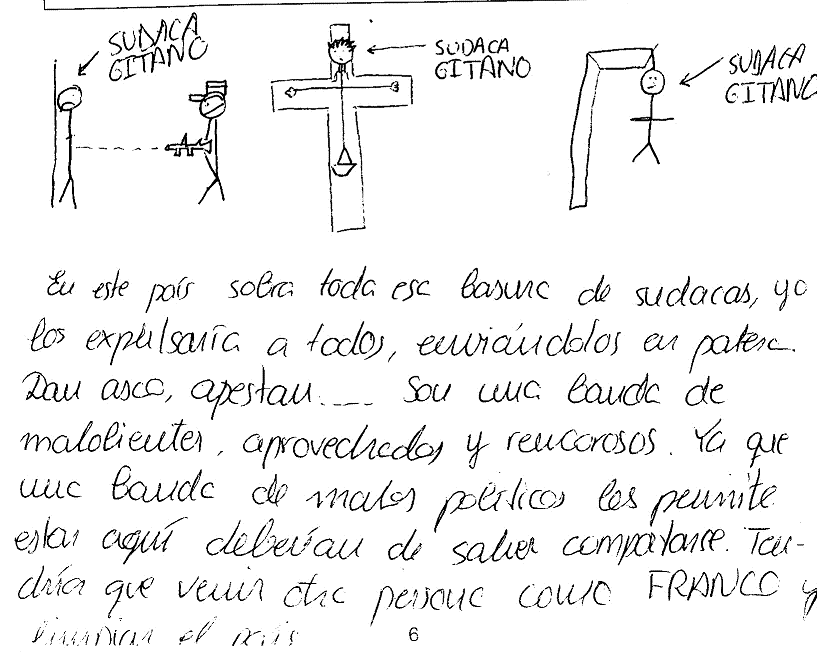 SUDACA
GITANO
SUDACA
GITANO
SUDACA
GITANO
En este país sobra toda esa basura de sudacas, yo
los expulsaría a todos, enviándolos en patera.
Dan asco, apestan.... Son una banda de
malolientes, aprovechados y rencorosos. Ya que
una banda de malos políticos les permite
estar aquí deberían de saber comportarse. Ten-
dría que venir otra persona como FRANCO y
limpiar el país
6